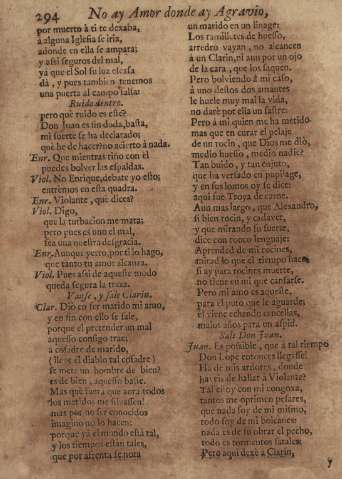 294 No ay Amor donde ay Agravio,
por muerto à ti te dexaba,
à alguna Iglesia se iria,
adonde en ella se ampara;
y assi seguros del mal,
yà que el Sol su luz escasa
dà, y pues tambien tenemos
una puerta al campo falsa:
Ruido dentro.
pero què ruido es esse?
Don Juan es sin duda, basta,
mi suerte se ha declarado
què he de hacer? no acierto à nada.
Enr. Que mientras riño con èl
puedes bolver las espaldas.
Viol. No Enrique, debate yo esto;
entremos en esta quadra.
Enr. Violante, què dices?
Viol. Digo,
que la turbacion me mata:
pero pues es uno el mal,
sea una nuestra desgracia.
Enr. Aunque yerro, por ti lo hago,
que tanto tu amor alcanza.
Viol. Pues assi de aqueste modo
queda segura la traza.
Vanse, y sale Clarin.
Clar. Diò en ser marido mi amo,
y en fin con ello se sale,
porque el pretender un mal
aquesto consigo trae;
à cofadre de marido,
(lleve el diablo tal cofadre)
se mete un hombre de bien?
es de bien, aquesto baste.
Mas què fuera que aora todos
los maridos me silvassen!
mas por no ser conocidos
imagino no lo hacen:
porque yà el mundo està tal,
y los tiempos estàn tales,
que por afrenta se nota
un marido en un linage:
Los ramilletes de huesso,
arredro vayan, no alcancen
à un Clarin, ni aun por un ojo
de la cara, que los saquen.
Pero bolviendo à mi caso,
à uno destos dos amantes
le huele muy mal la vida,
no darè por ella un sastre:
Pero à mi quien me ha metido
mas que en curar el pelaje
de un rocin, que Dios me diò,
medio huesso, medio nadie?
Tan buido, y tan enjuto,
que ha versado en pupilage,
y en sus lomos oy se dice:
aqui fue Troya de carne.
Aun mas largo, que Alexandro,
si bien rocin, y cadaver,
y que mirando su fuerte,
dice con ronco lenguaje:
Aprended de mi rocines,
mirad lo que el tiempo hace
si ay para rocines muerte,
no tiene en mi que cansarse.
Pero mi amo es aqueste,
para el puto que le aguarde;
èl viene echando centellas,
malos años para un aspid.
Sale Don Juan.
Juan. Es possible, que à tal tiempo
Don Lope entonces llegasse!
Ha de mis ardores, donde
havrè de hallar à Violante?
Tal estoy con mi congoxa,
tantos me oprimen pesares,
que nada soy de mi mismo,
todo soy de mi bolcanes:
nada es de su obrar el pecho,
todo es tormentos fatales:
Pero aqui dexè à Clarin,
y